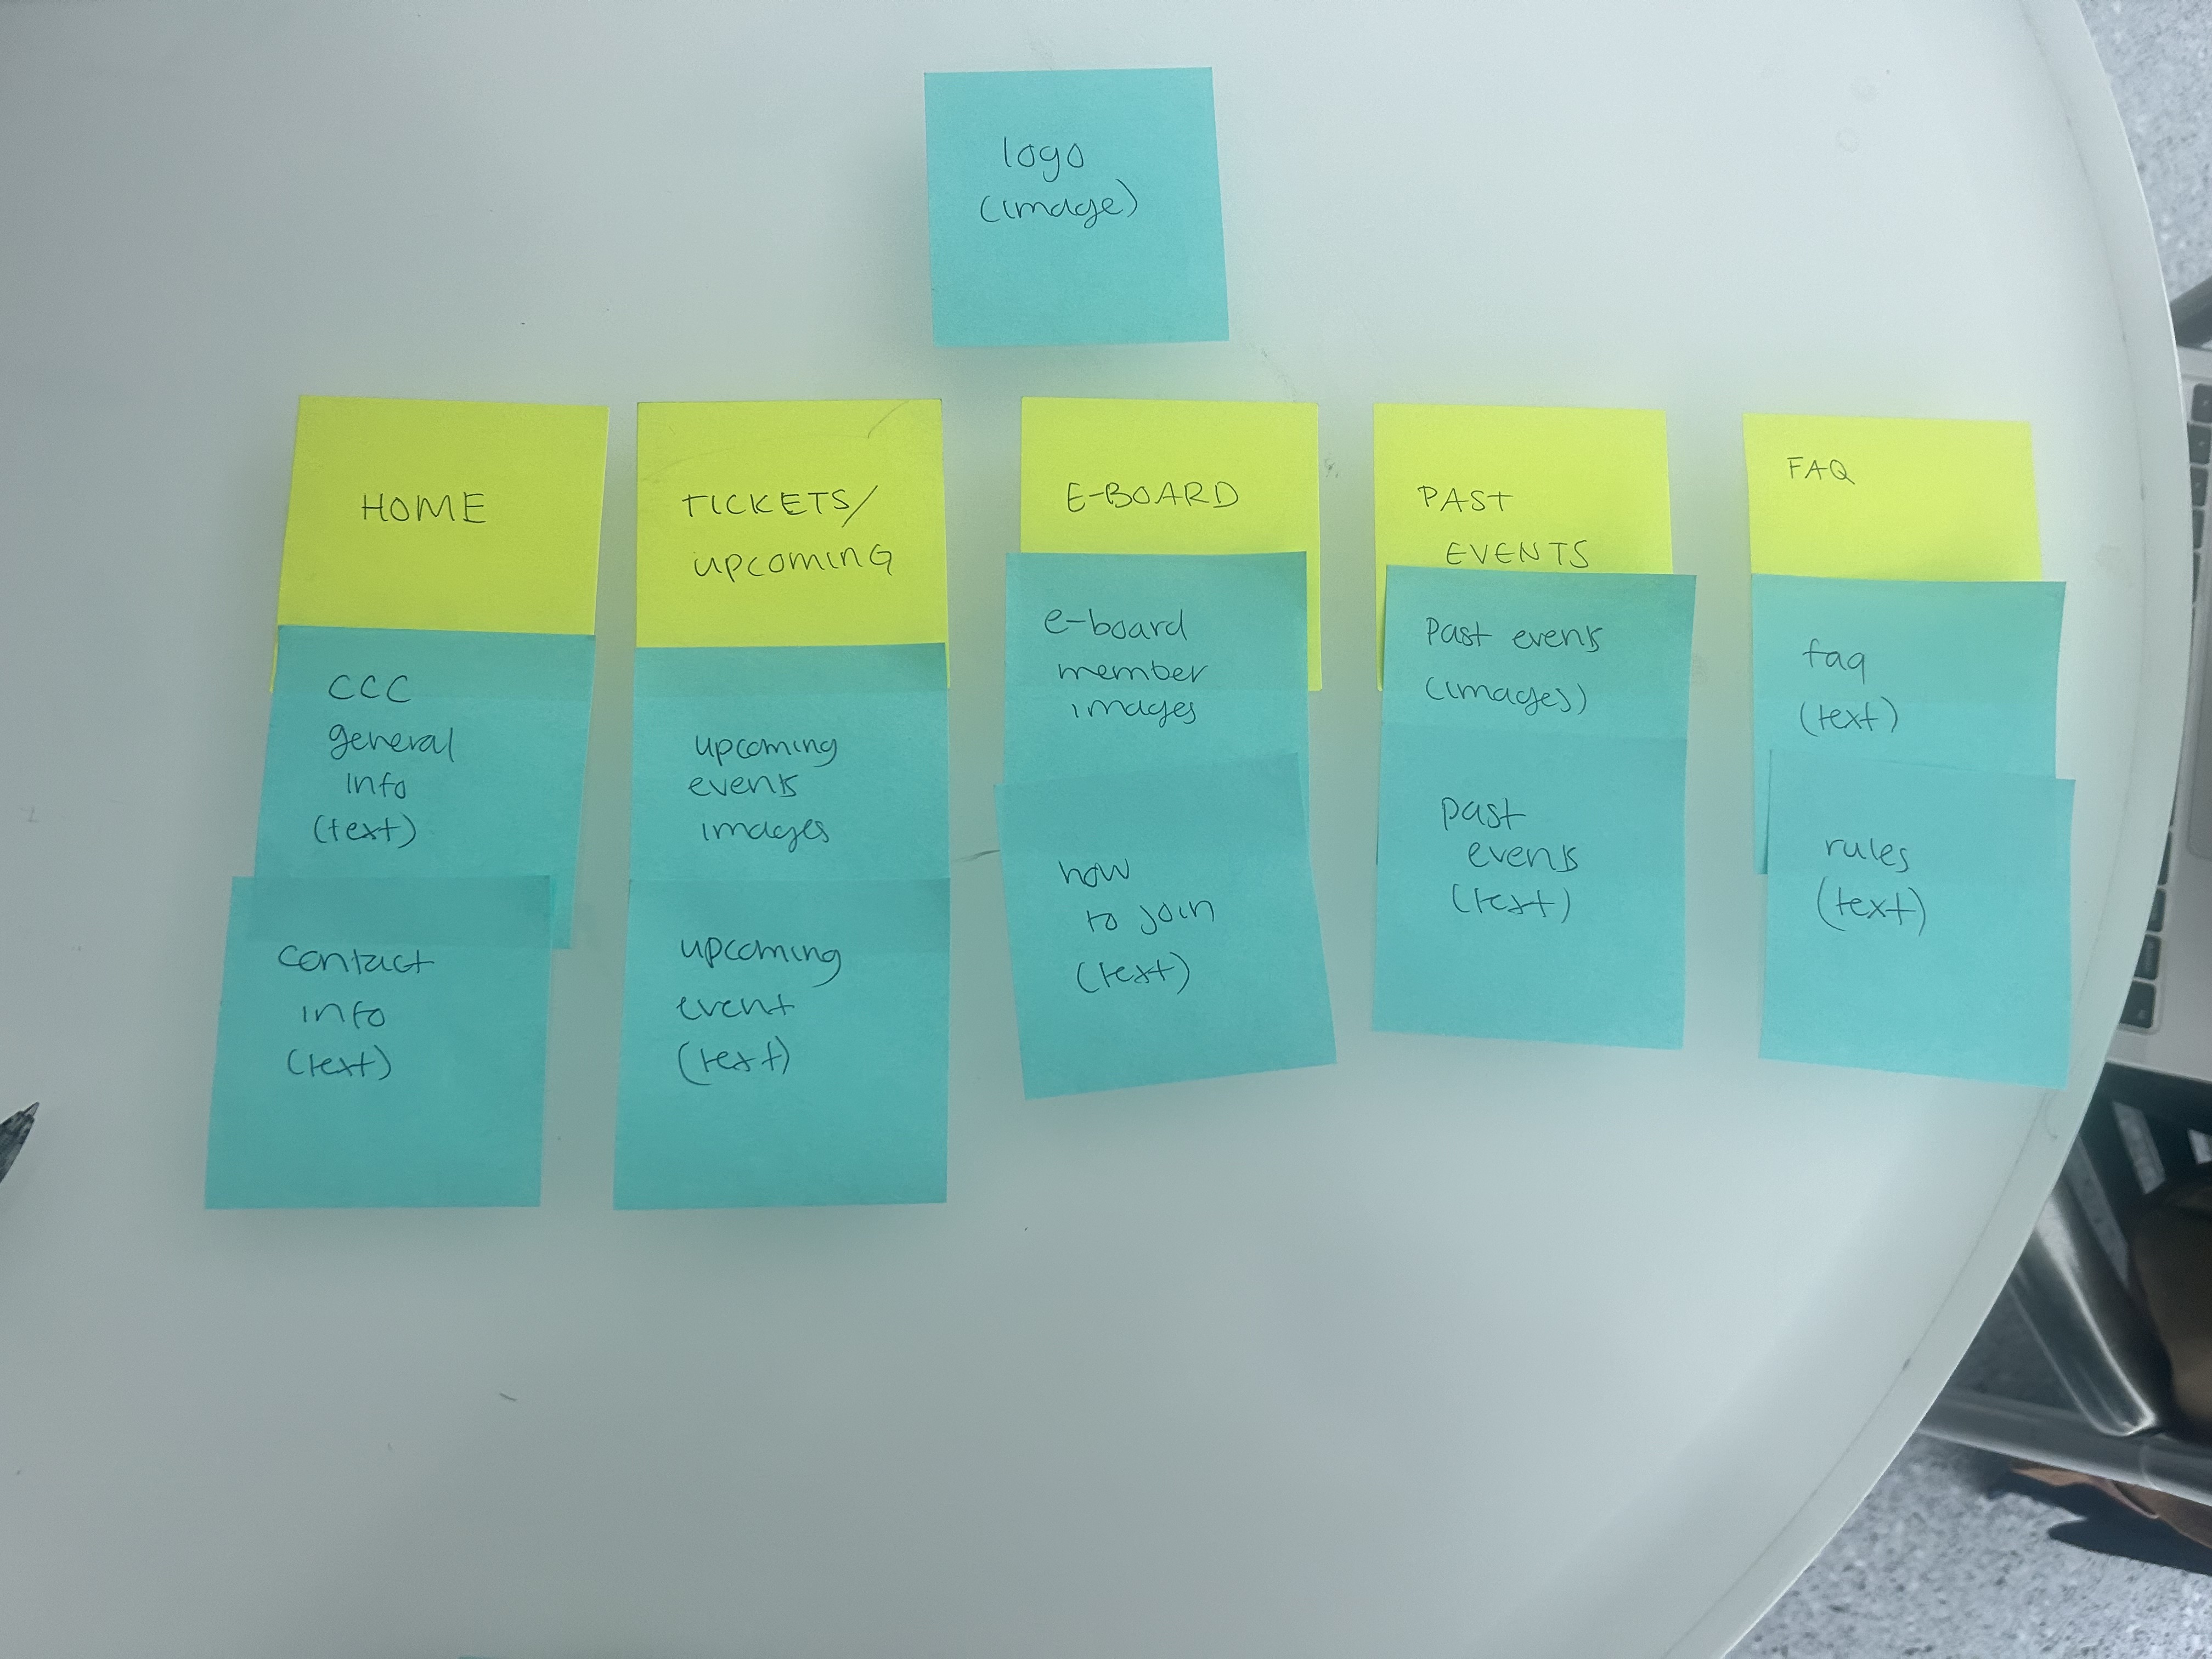 logo
(image)
HOME
CCC
general
info
(text)
contact
info
(text)
TICKETS/
UPCOMING
upcoming
events
images
upcoming
event
(text)
E-BOARD
e-board
member
images
how
to join
(text)
PAST
EVENTS
Past events
(images)
past
events
(text)
FAQ
faq
(text)
rules
(text)